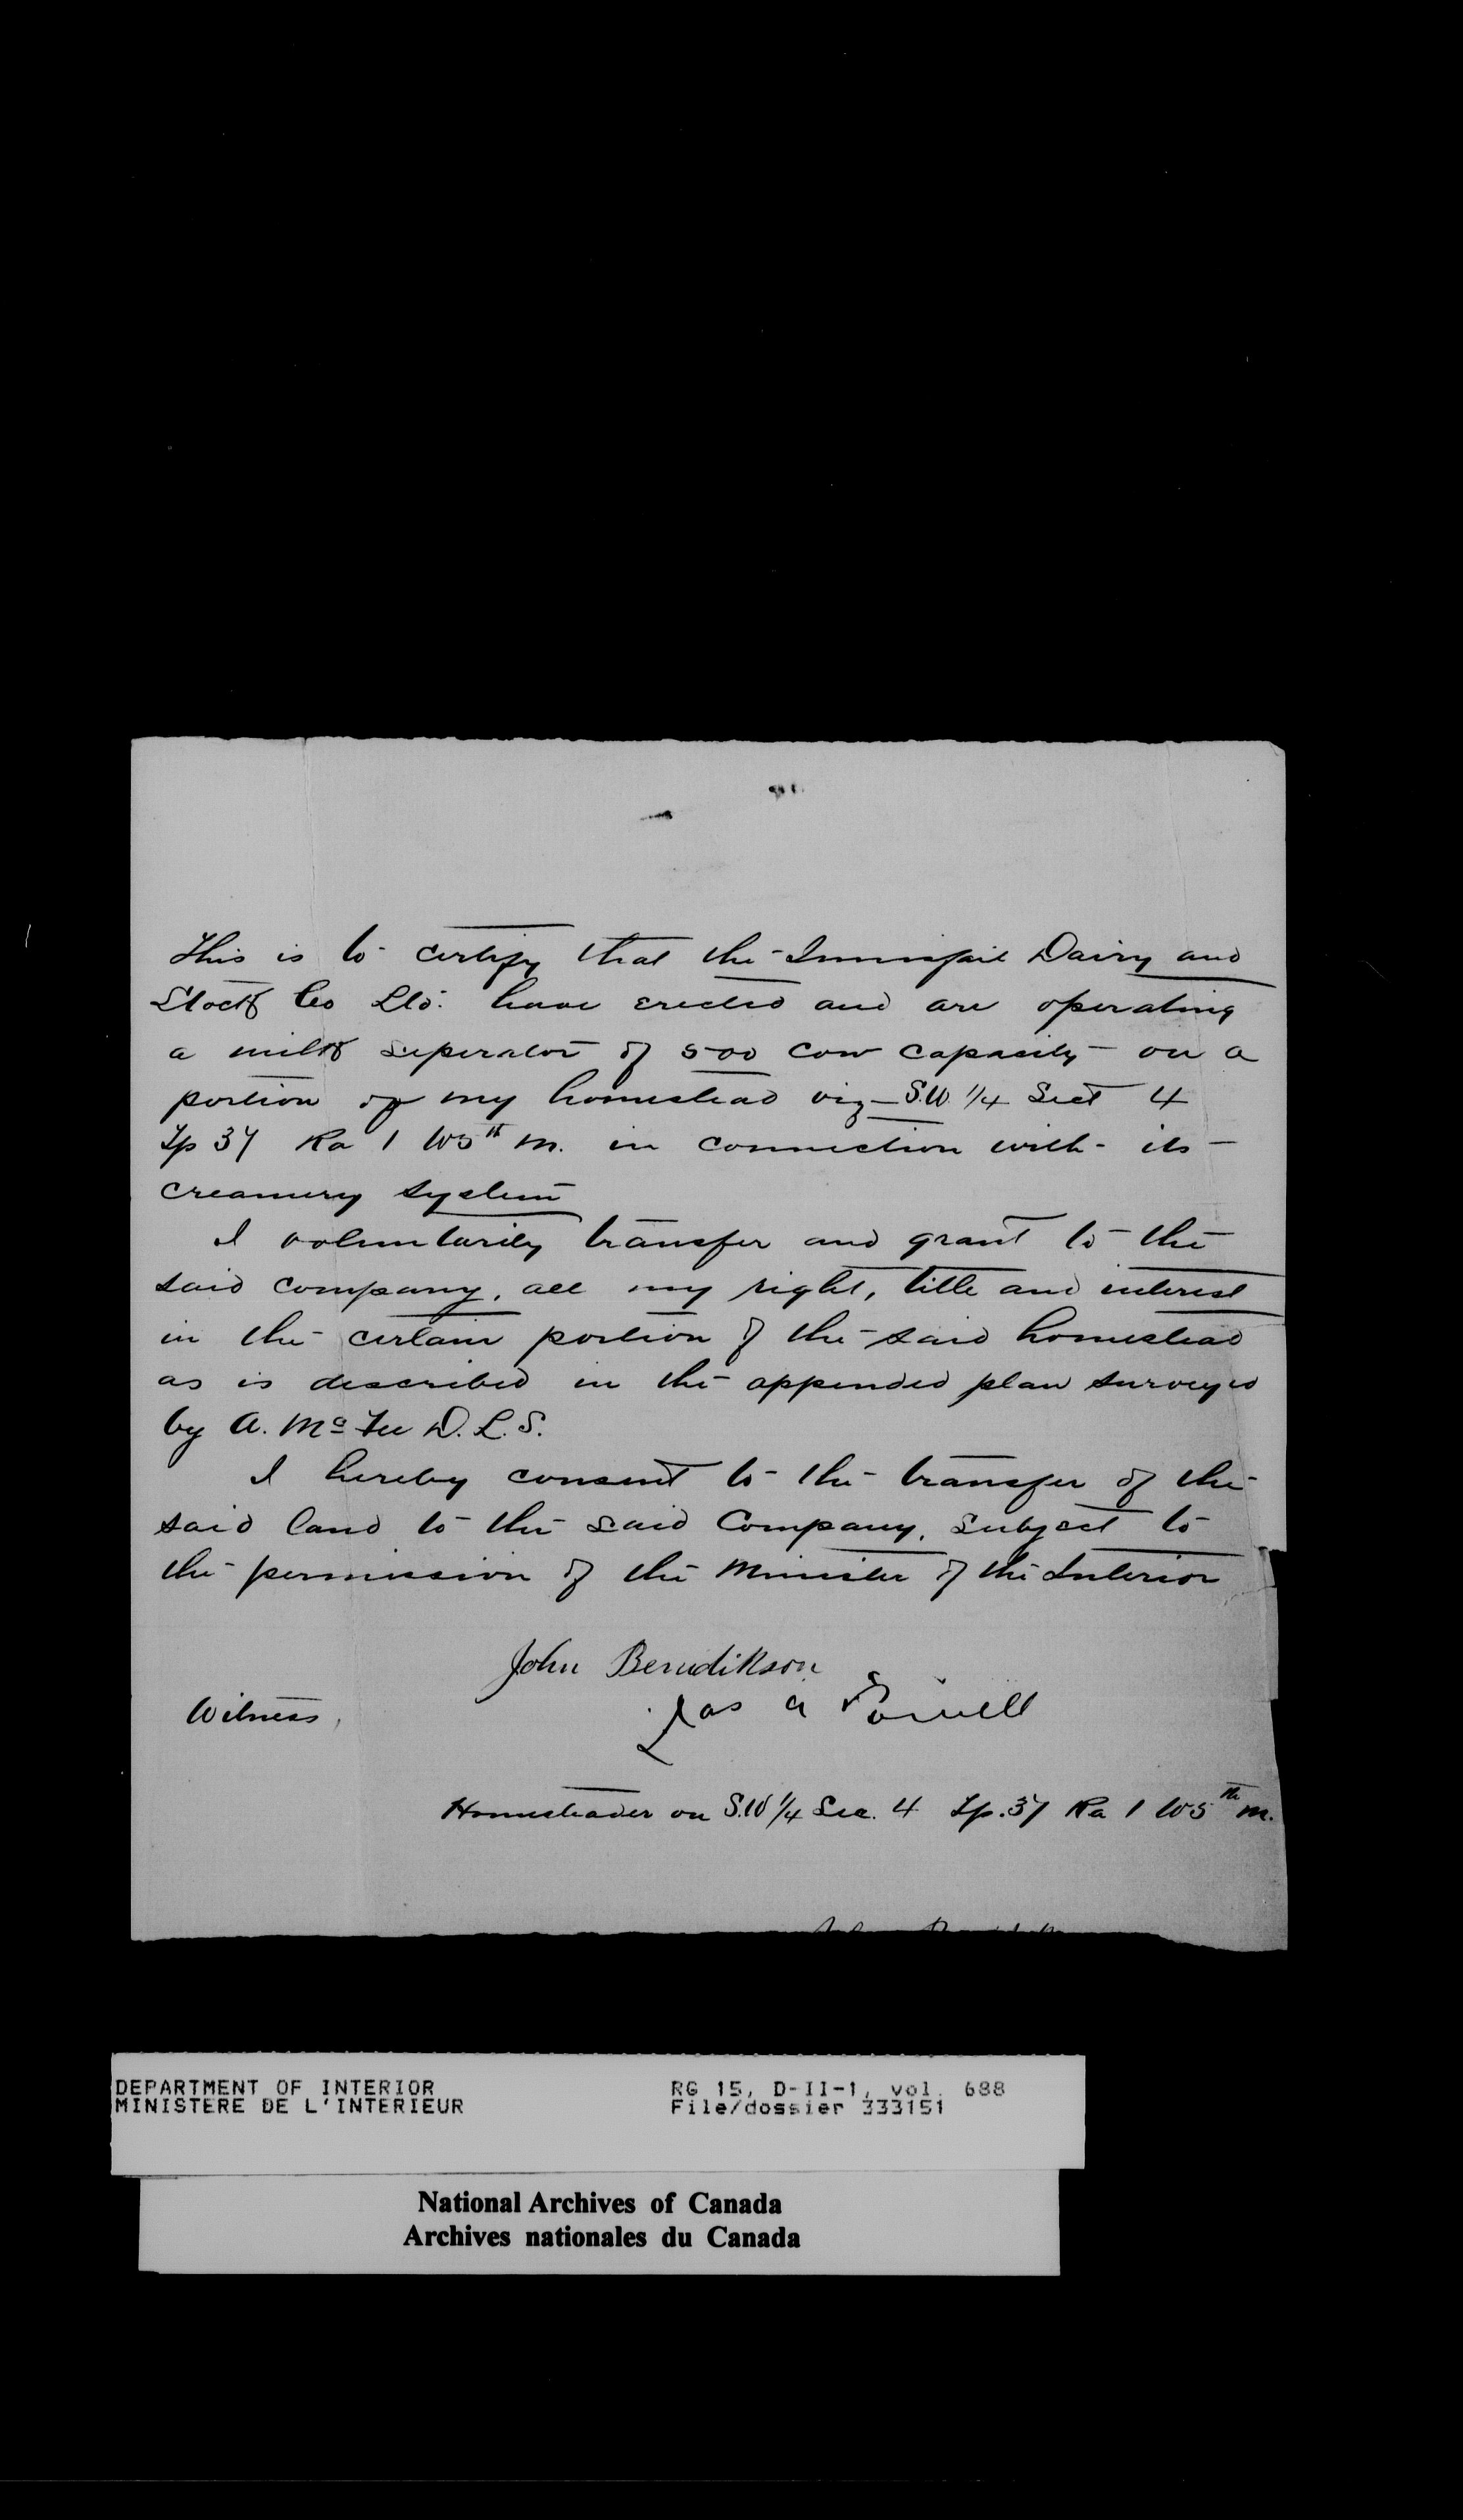 This is to certify that the Innisfail Dairy and
Stock Co Ltd. have erected and are operating
a milk seperator of 500 cow capacity on a
portion of my homestead viz S.W. 1/4 Sect 4
Tp 37 Ra 1 W5th M. in connection with its
creamery system
I voluntarily transfer and grant to the
said company, all my right, title and interest
in the certain portion of the said homestead
as is described in the appended plan surveyed
by A. McFee D.L.S.
I hereby consent to the transfer of the
said land to the said Company, subject to
the permission of the Minister of the Interior
John Benedikson
Witness, Jas a
Homesteader on S.W 1/4 Sec. 4 Tp. 37 Ra 1 W5th M.
DEPARTMENT OF INTERIOR RG 15, D-II-1, vol. 688
MINISTERE DE L'INTERIEUR File/dossier 333151
National Archives of Canada
Archives nationales du Canada